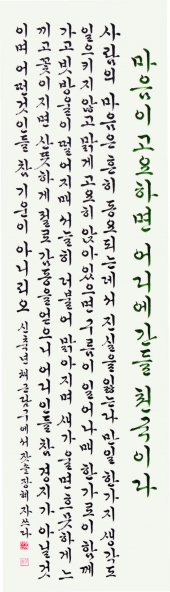 마음이 고요하면 어디에간들 천국이다
사람의 마음은 흔히 동요되는데서 진실을잃는다 만일 한가지 생각도
일으키지 않고 맑게 고요히 앉아있으면 구름이 일어나매 한가로이 함께
가고 빗방울이 떨어지매 서늘히 더불어 맑아지며 새가 울면 흐뭇하게 느
끼고 꽃이 지면 산뜻하게 절로 감동을얻으니 어디인들 참 경지가 아닐것
이며 어떤것인들 참 기운이 아니리오 신축년 채근담구에서 갓솔 장혜자 쓰다